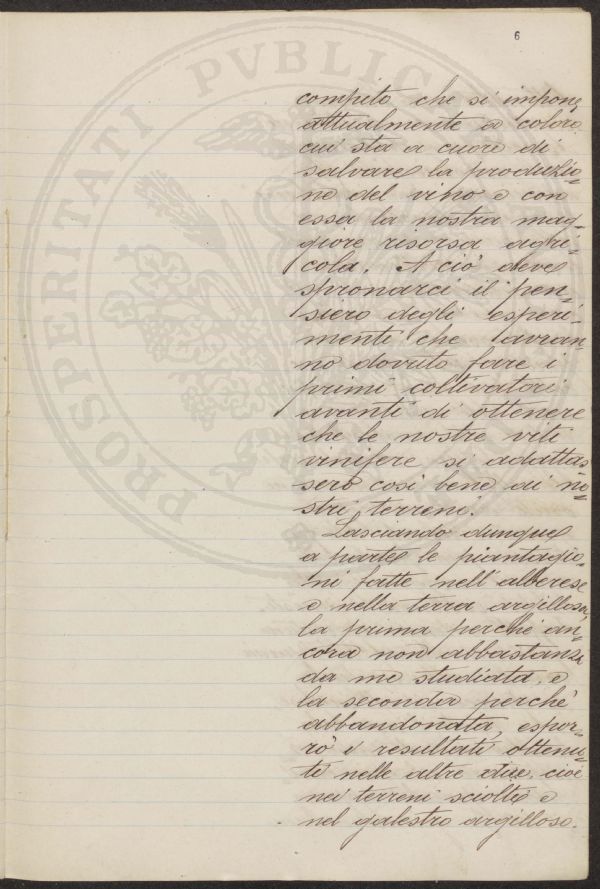 6
PROSPERITATI PVBLIC
compito che si impone
attualmente a coloro
cui sta a cuore di
salvare la produzio=
ne del vino e con
essa la nostra mag=
giore risorsa agri=
cola. A ciò deve
spronarci il pen=
siero degli esperi=
menti che avran=
no dovuto fare i
primi coltivatori
avanti di ottenere
che le nostre viti
vinifere si adattas=
sero così bene ai no=
stri terreni.
Lasciando dunque
a parte le piantagio=
ni fatte nell'alberese
e nella terra argillosa,
la prima perchè an=
cora non abbastanza
da me studiata, e
la seconda perchè
abbandonata, espor=
rò i resultati ottenu=
ti nelle altre due, cioè
nei terreni sciolti e
nel galestro argilloso.